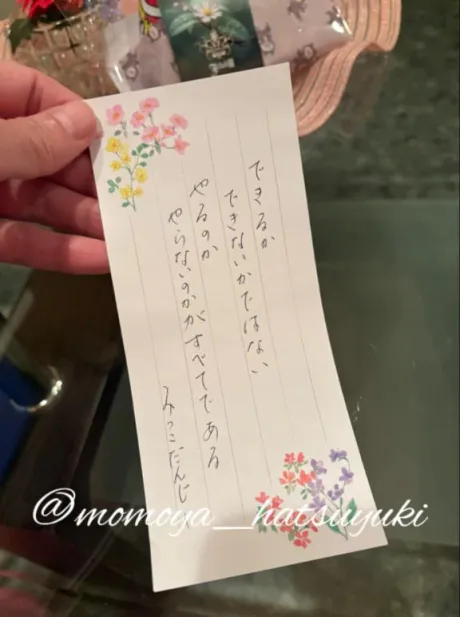 できるか
できないかではない
やるのか
やらないのかがすべてである
みつこだんじ
@momoya__hatsuyuki